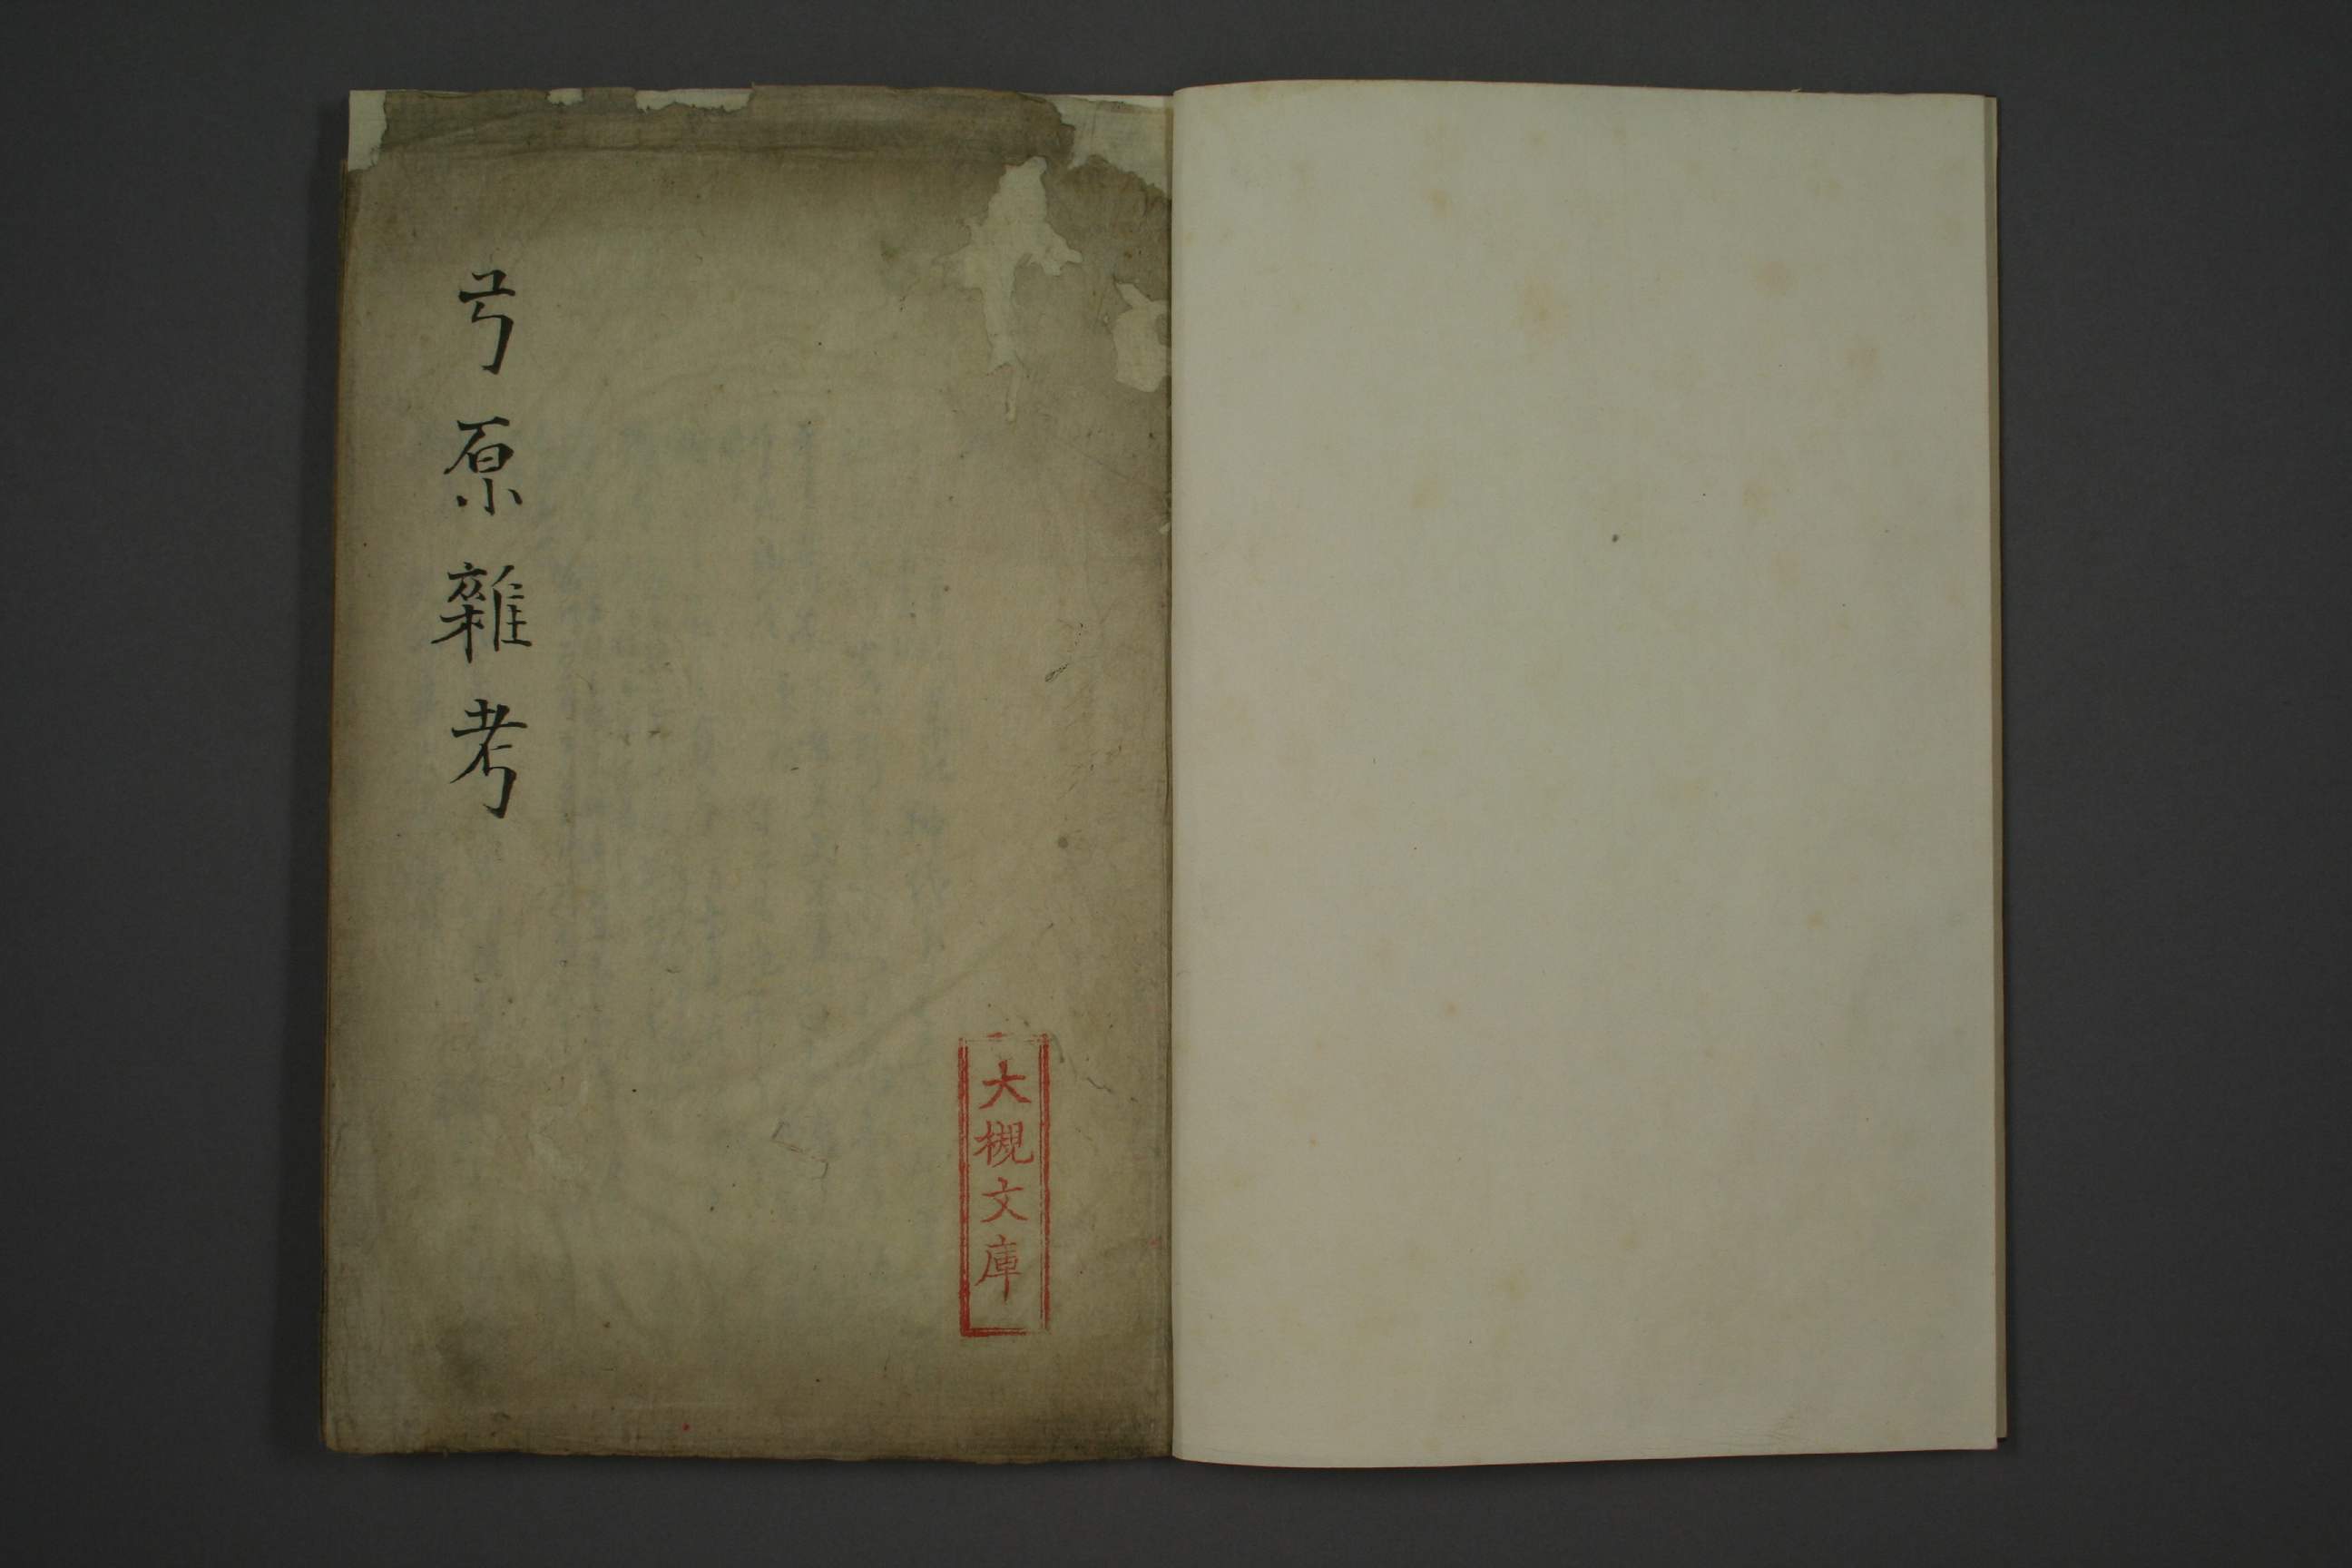 弓原雜考
大槻文庫